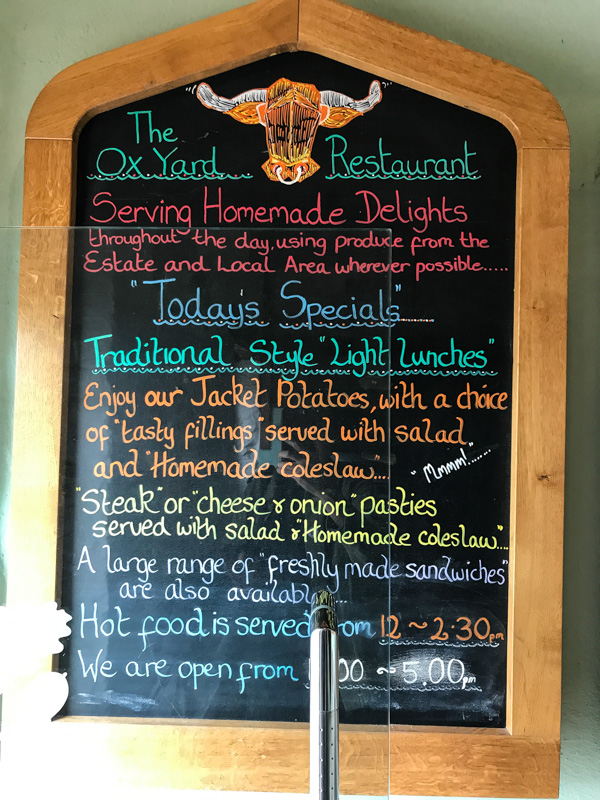 The
Ox Yard Restaurant
Serving Homemade Delights
throughout the day, using produce from the
Estate and Local Area wherever possible.....
"Today's Specials"
Traditional Style "Light Lunches"
Enjoy our Jacket Potatoes, with a choice
of "tasty fillings" served with salad
and "Homemade coleslaw"....
"Mmmm!.......
"Steak" or "cheese & onion" pasties
served with salad & "Homemade coleslaw"....
A large range of "freshly made sandwiches"
are also available...
Hot food is served from 12 ~ 2.30pm
We are open from 00 ~ 5.00pm